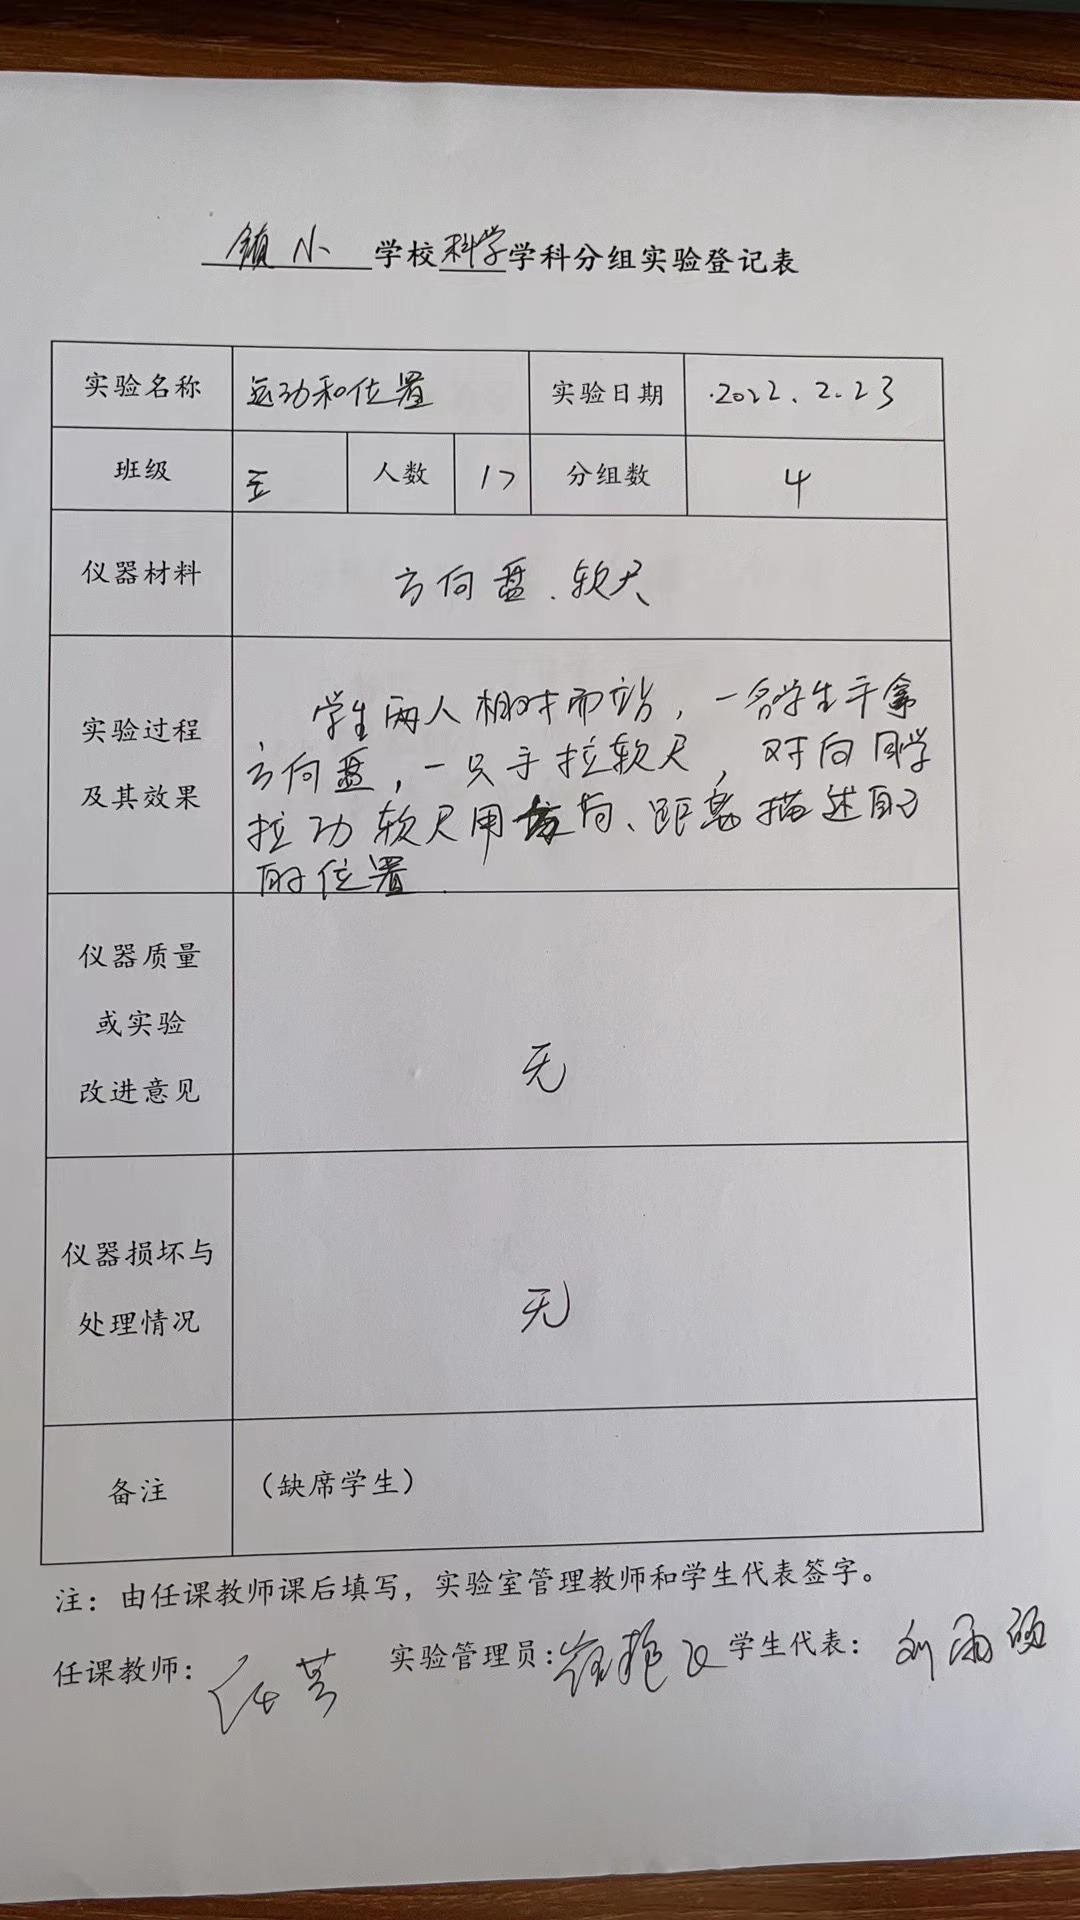 镇小学校科学学科分组实验登记表
实验名称 运动和位置 实验日期 2022.2.23
班级 三 人数 17 分组数 4
仪器材料 方向盘、软尺
实验过程
及其效果
学生两人相对而站，一名学生手拿
方向盘，一只手拉软尺，对向同学
拉动软尺用方向、距离描述自己
的位置
仪器质量
或实验
改进意见
无
仪器损坏与
处理情况
无
备注 （缺席学生）
注：由任课教师课后填写，实验室管理教师和学生代表签字。
任课教师： 实验管理员： 学生代表： 刘雨硕